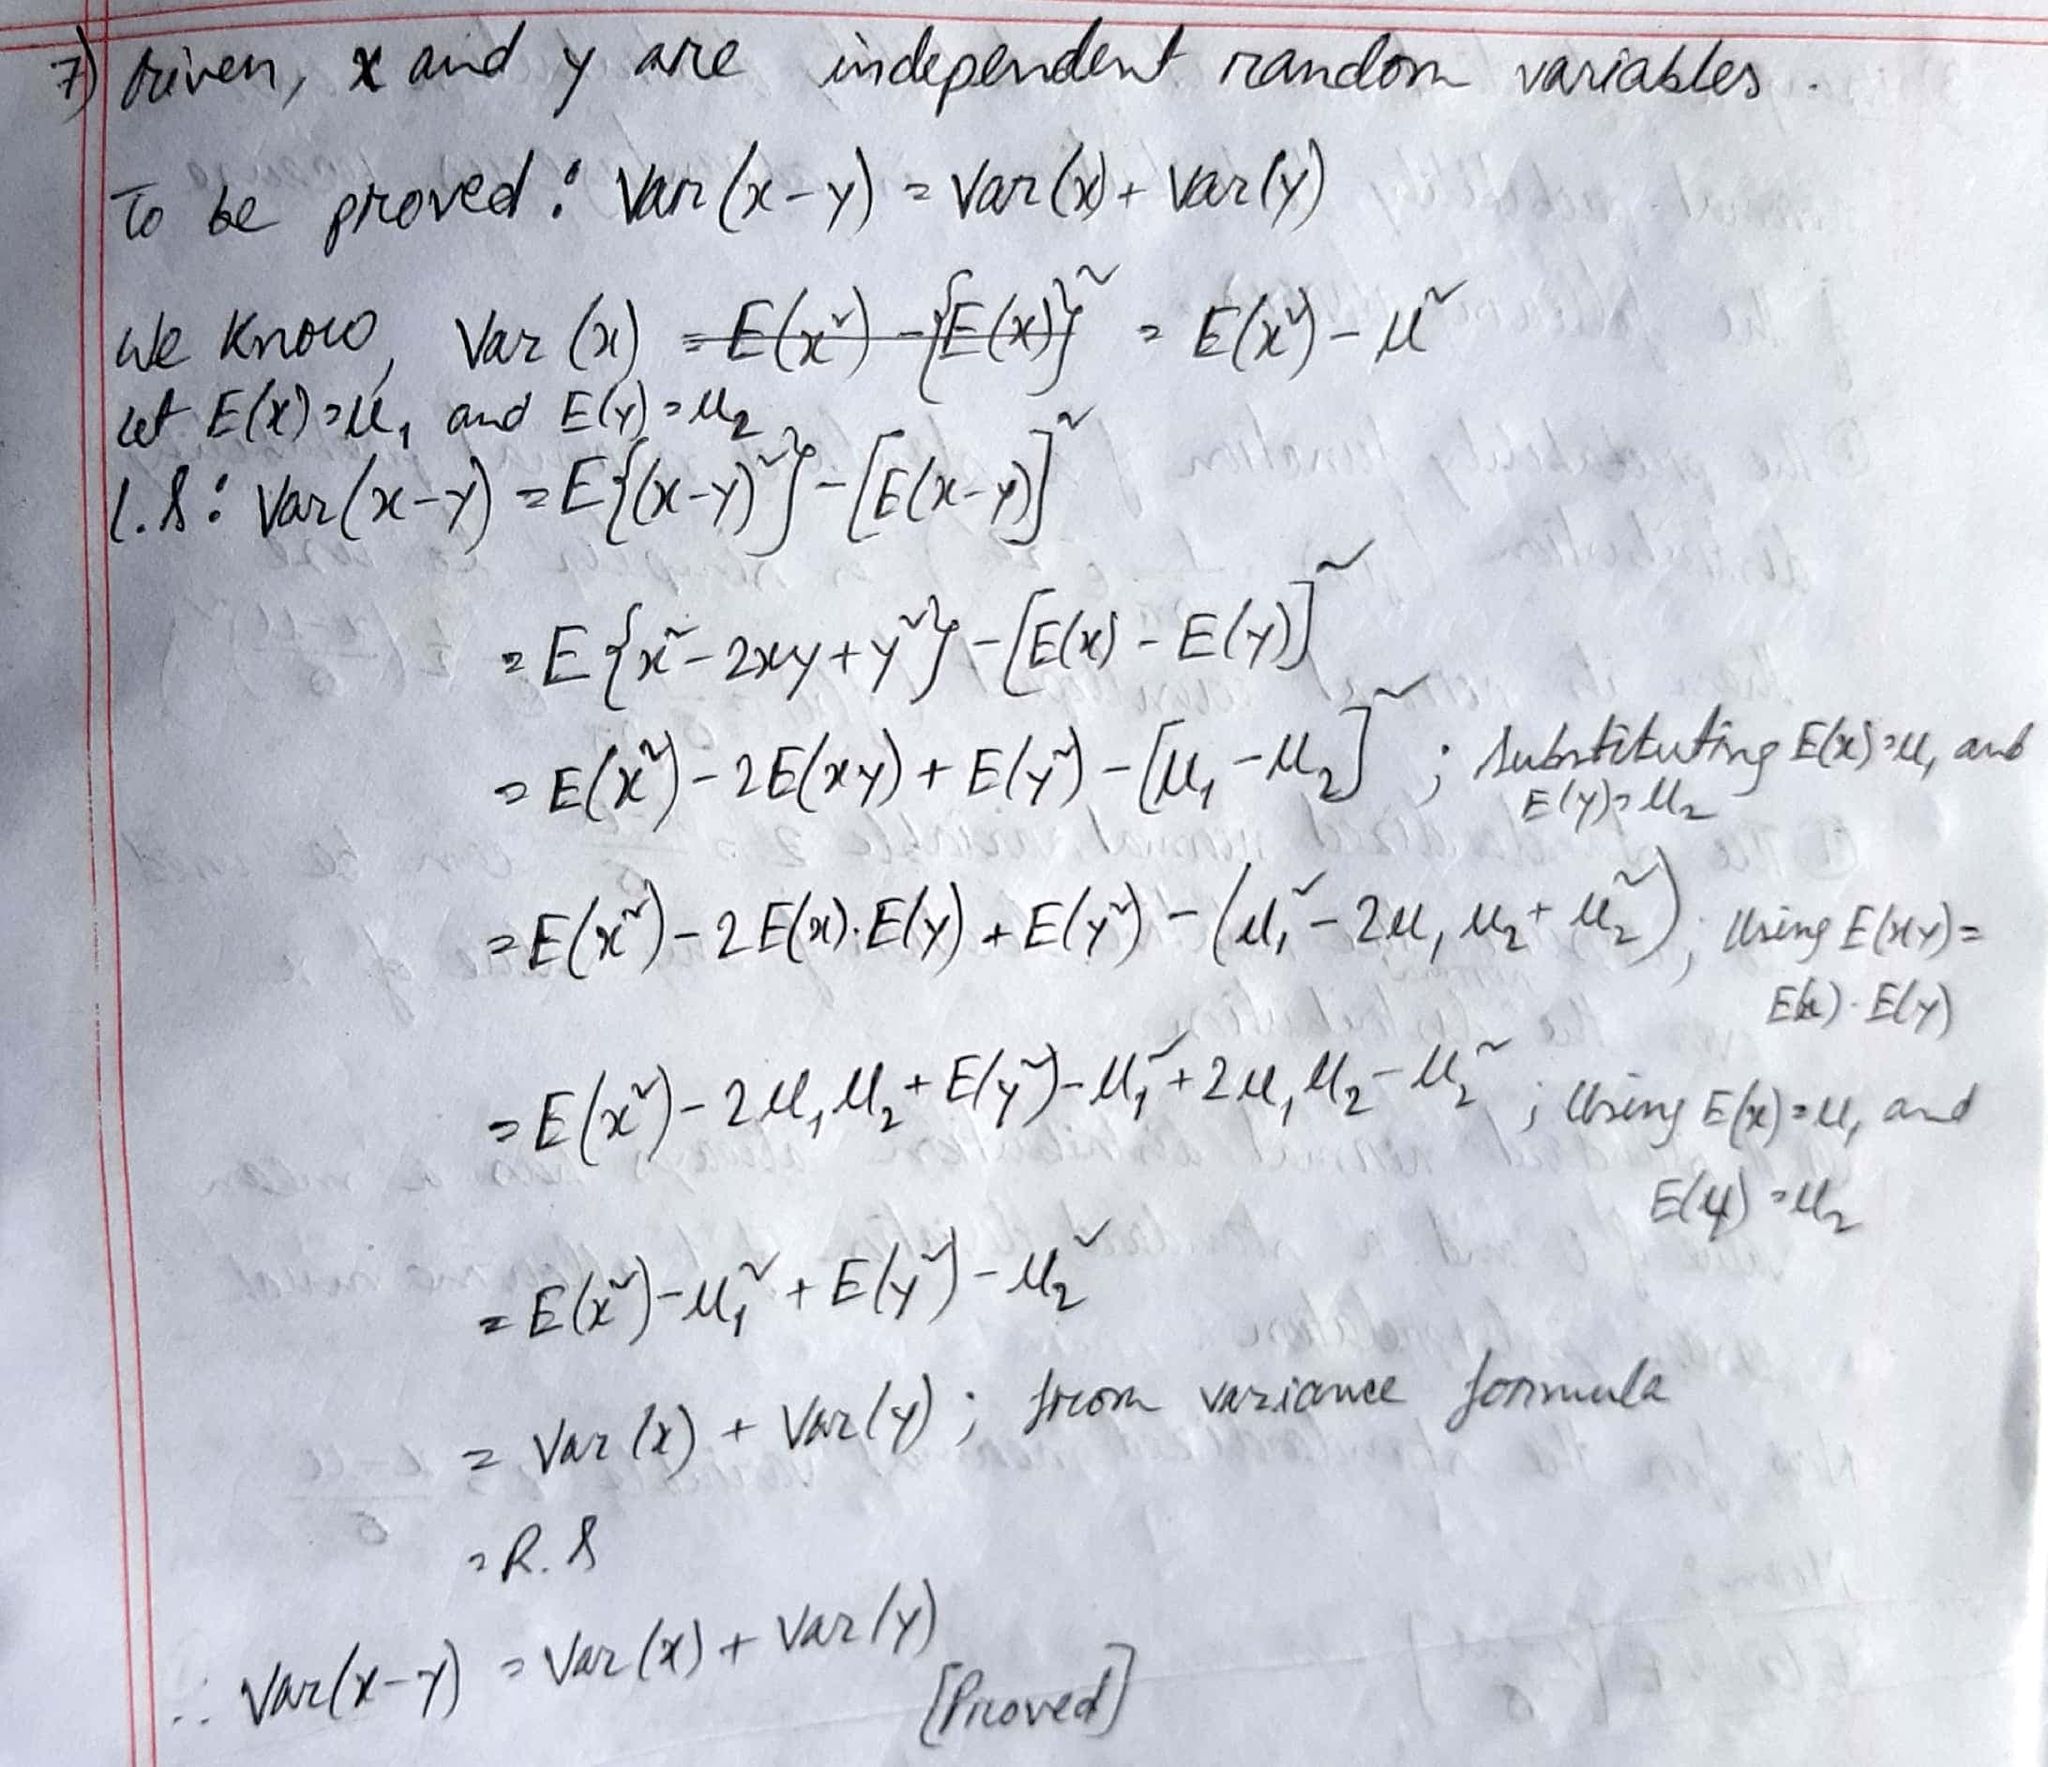 7) Given, x and y are independent random variables.
To be proved: Var(x-y) = Var(x) + Var(y)
We know, Var(x) = E(x²) - {E(x)}² = E(x²) - μ²
Let E(x) = μ₁ and E(y) = μ₂
L.S: Var(x-y) = E{(x-y)²} - [E(x-y)]²
= E{x² - 2xy + y²} - [E(x) - E(y)]²
= E(x²) - 2E(xy) + E(y²) - [μ₁ - μ₂]² ; Substituting E(x) = μ₁ and
E(y) = μ₂
= E(x²) - 2E(x).E(y) + E(y²) - (μ₁² - 2μ₁μ₂ + μ₂²) ; Using E(xy) =
E(x).E(y)
= E(x²) - 2μ₁μ₂ + E(y²) - μ₁² + 2μ₁μ₂ - μ₂² ; Using E(x) = μ₁ and
E(y) = μ₂
= E(x²) - μ₁² + E(y²) - μ₂²
= Var(x) + Var(y) ; from variance formula
= R.S
∴ Var(x-y) = Var(x) + Var(y)
[Proved]